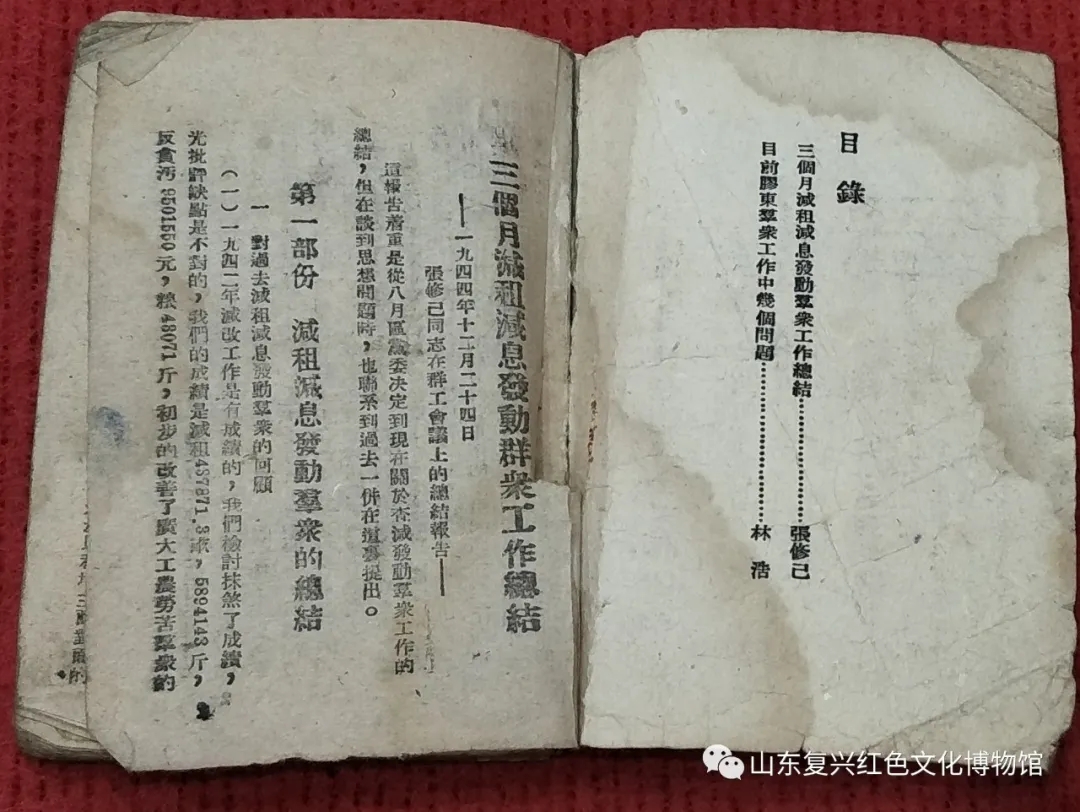 目錄
三個月減租減息發動羣衆工作總結……………………張修己
目前膠東羣衆工作中幾個問題……………………林浩
三個月減租減息發動群衆工作總結
——一九四四年十二月二十四日
張修己同志在群工會議上的總結報告——
這報告着重是從八月區黨委决定到現在關於查減發動羣衆工作的
總結，但在談到思想問題時，也聯系到過去一併在這裏提出。
第一部份　減租減息發動羣衆的總結
一　對過去減租減息發動羣衆的回顧
（一）一九四二年減改工作是有成績的，我們檢討抹煞了成績，
光批評缺點是不對的，我們的成績是減租487871.3畝，5894143斤，
反貪汚9501550元，粮48071斤，初步的改善了廣大工農勞苦羣衆的
山东复兴红色文化博物馆